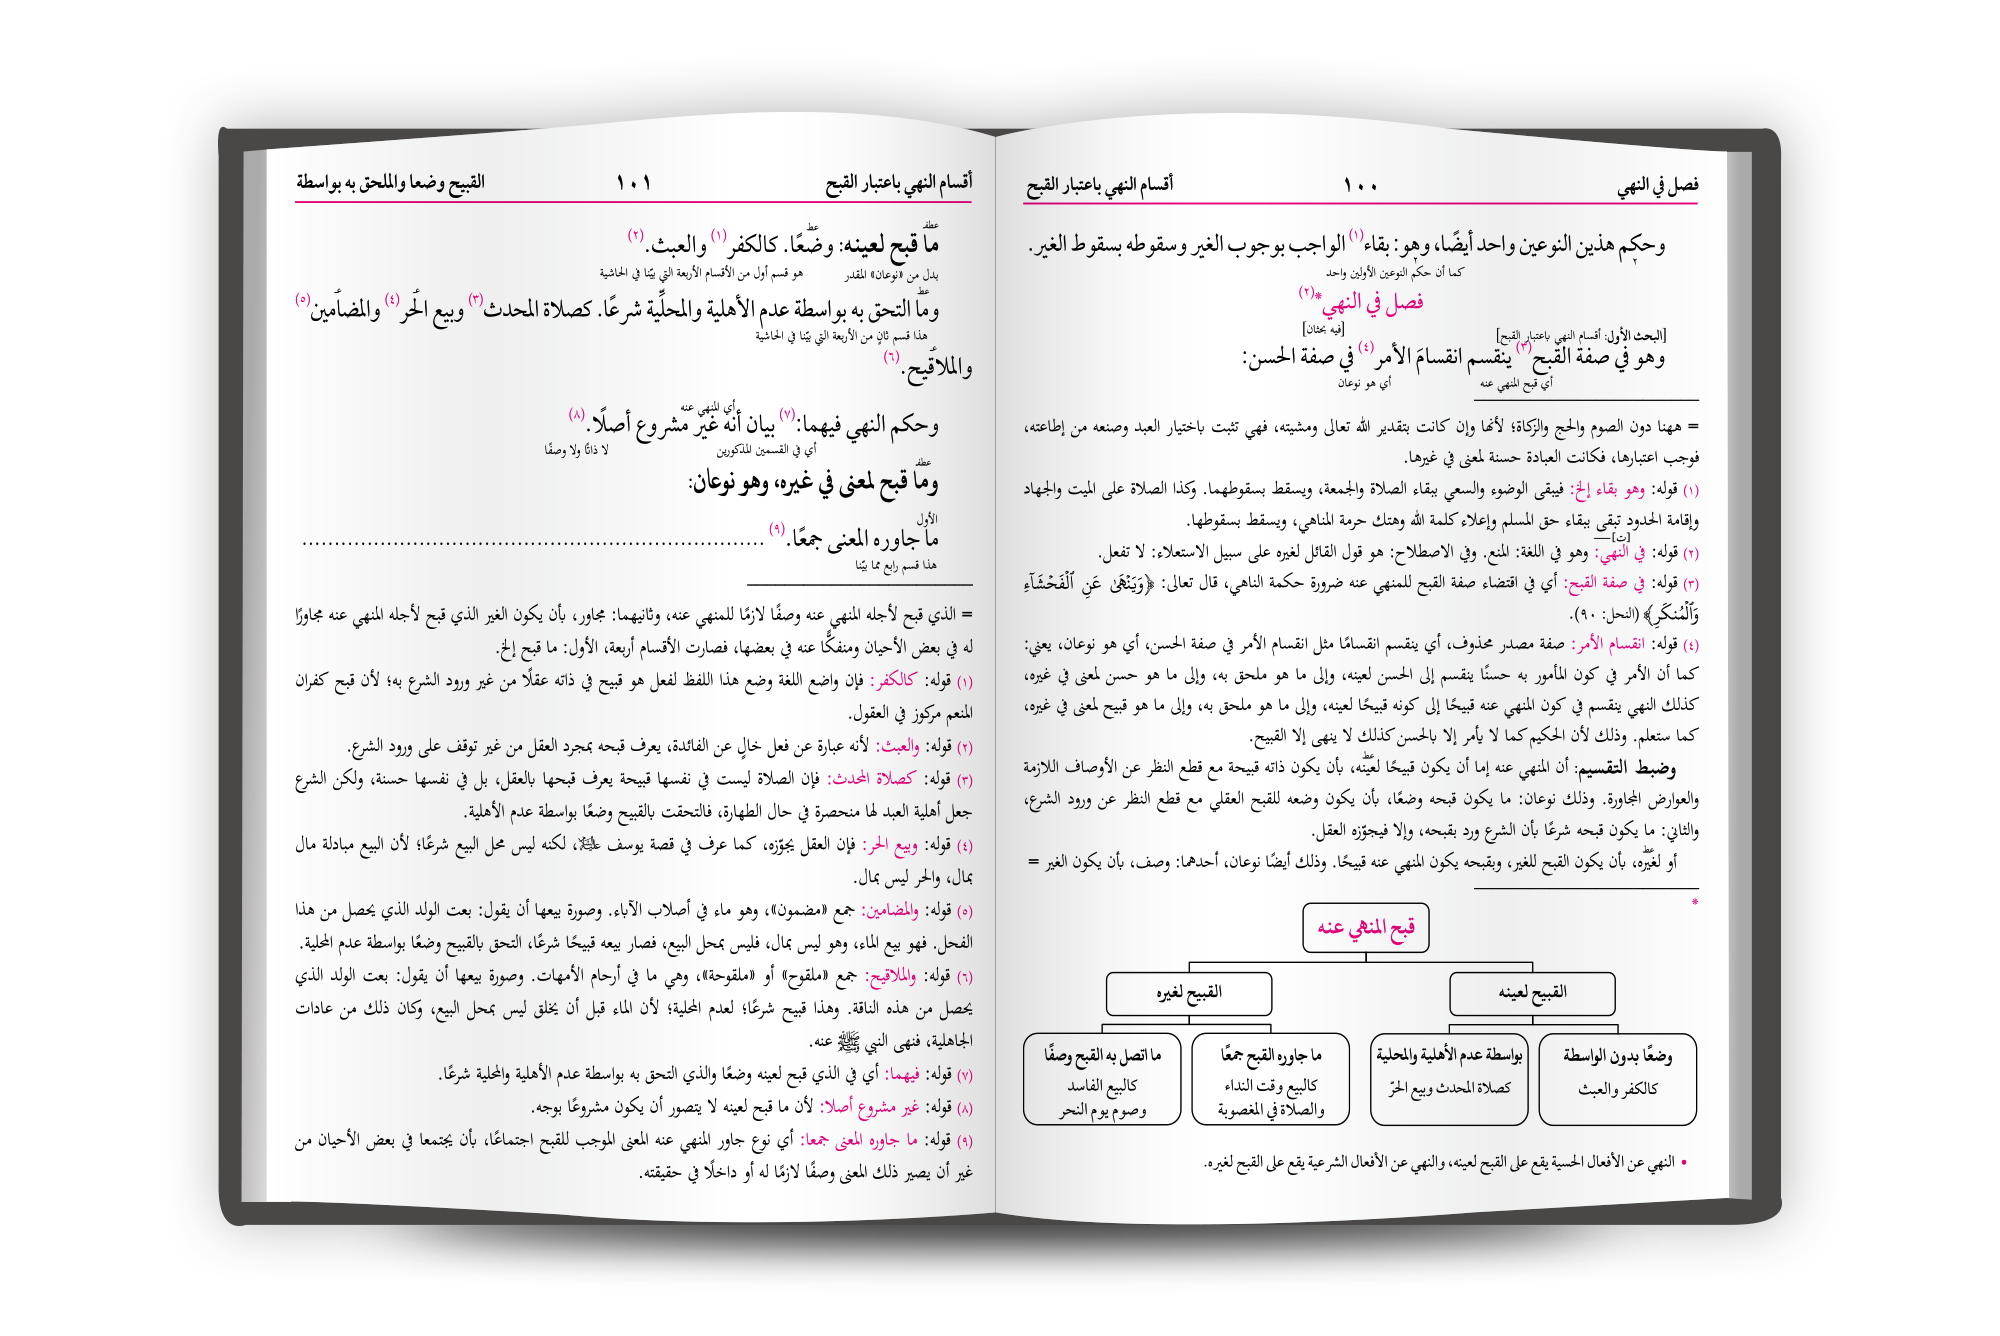 فصل في النهي ١٠٠ أقسام النهي باعتبار القبح
وحكم هذين النوعين واحد أيضًا، وهو: بقاء(١) الواجب بوجوب الغير وسقوطه بسقوط الغير.
كما أن حكم النوعين الأولين واحد
فصل في النهي*(٢)
[فيه بحثان]
[البحث الأول: أقسام النهي باعتبار القبح]
وهو في صفة القبح(٣) ينقسم انقسامَ الأمر(٤) في صفة الحسن:
أي قبح المنهي عنه أي هو نوعان
= ههنا دون الصوم والحج والزكاة؛ لأنها وإن كانت بتقدير الله تعالى ومشيته، فهي تثبت باختيار العبد وصنعه من إطاعته،
فوجب اعتبارها، فكانت العبادة حسنة لمعنى في غيرها.
(١) قوله: وهو بقاء إلخ: فيبقى الوضوء والسعي ببقاء الصلاة والجمعة، ويسقط بسقوطهما. وكذا الصلاة على الميت والجهاد
وإقامة الحدود تبقى ببقاء حق المسلم وإعلاء كلمة الله وهتك حرمة المناهي، ويسقط بسقوطها.
[ت]
(٢) قوله: في النهي: وهو في اللغة: المنع. وفي الاصطلاح: هو قول القائل لغيره على سبيل الاستعلاء: لا تفعل.
(٣) قوله: في صفة القبح: أي في اقتضاء صفة القبح للمنهي عنه ضرورة حكمة الناهي، قال تعالى: ﴿وَيَنۡهَىٰ عَنِ ٱلۡفَحۡشَآءِ
وَٱلۡمُنكَرِ﴾ (النحل: ٩٠).
(٤) قوله: انقسام الأمر: صفة مصدر محذوف، أي ينقسم انقسامًا مثل انقسام الأمر في صفة الحسن، أي هو نوعان، يعني:
كما أن الأمر في كون المأمور به حسنًا ينقسم إلى الحسن لعينه، وإلى ما هو ملحق به، وإلى ما هو حسن لمعنى في غيره،
كذلك النهي ينقسم في كون المنهي عنه قبيحًا إلى كونه قبيحًا لعينه، وإلى ما هو ملحق به، وإلى ما هو قبيح لمعنى في غيره،
كما ستعلم. وذلك لأن الحكيم كما لا يأمر إلا بالحسن كذلك لا ينهى إلا القبيح.
وضبط التقسيم: أن المنهي عنه إما أن يكون قبيحًا لعينه، بأن يكون ذاته قبيحة مع قطع النظر عن الأوصاف اللازمة
والعوارض المجاورة. وذلك نوعان: ما يكون قبحه وضعًا، بأن يكون وضعه للقبح العقلي مع قطع النظر عن ورود الشرع،
والثاني: ما يكون قبحه شرعًا بأن الشرع ورد بقبحه، وإلا فيجوّزه العقل.
أو لغيره، بأن يكون القبح للغير، وبقبحه يكون المنهي عنه قبيحًا. وذلك أيضًا نوعان، أحدهما: وصف، بأن يكون الغير =
*
قبح المنهي عنه
القبيح لعينه القبيح لغيره
وضعًا بدون الواسطة بواسطة عدم الأهلية والمحلية ما جاوره القبح جمعًا ما اتصل به القبح وصفًا
كالكفر والعبث كصلاة المحدث وبيع الحرّ كالبيع وقت النداء كالبيع الفاسد
والصلاة في المغصوبة وصوم يوم النحر
• النهي عن الأفعال الحسية يقع على القبح لعينه، والنهي عن الأفعال الشرعية يقع على القبح لغيره.
أقسام النهي باعتبار القبح ١٠١ القبيح وضعا والملحق به بواسطة
عطف عط
ما قبح لعينه: وضعًا. كالكفر(١) والعبث.(٢)
بدل من «نوعان» المقدر هو قسم أول من الأقسام الأربعة التي بيّنا في الحاشية
عط
وما التحق به بواسطة عدم الأهلية والمحلّية شرعًا. كصلاة المحدث(٣) وبيع الحر(٤) والمضامين(٥)
هذا قسم ثانٍ من الأربعة التي بيّنا في الحاشية
والملاقيح.(٦)
أي المنهي عنه
وحكم النهي فيهما:(٧) بيان أنه غير مشروع أصلًا.(٨)
أي في القسمين المذكورين لا ذاتًا ولا وصفًا
عطف
وما قبح لمعنى في غيره، وهو نوعان:
الأول
ما جاوره المعنى جمعًا.(٩) ........................................................................
هذا قسم رابع مما بيّنا
= الذي قبح لأجله المنهي عنه وصفًا لازمًا للمنهي عنه، وثانيهما: مجاور، بأن يكون الغير الذي قبح لأجله المنهي عنه مجاورًا
له في بعض الأحيان ومنفكًّا عنه في بعضها، فصارت الأقسام أربعة، الأول: ما قبح إلخ.
(١) قوله: كالكفر: فإن واضع اللغة وضع هذا اللفظ لفعل هو قبيح في ذاته عقلًا من غير ورود الشرع به؛ لأن قبح كفران
المنعم مركوز في العقول.
(٢) قوله: والعبث: لأنه عبارة عن فعل خالٍ عن الفائدة، يعرف قبحه بمجرد العقل من غير توقف على ورود الشرع.
(٣) قوله: كصلاة المحدث: فإن الصلاة ليست في نفسها قبيحة يعرف قبحها بالعقل، بل في نفسها حسنة، ولكن الشرع
جعل أهلية العبد لها منحصرة في حال الطهارة، فالتحقت بالقبيح وضعًا بواسطة عدم الأهلية.
(٤) قوله: وبيع الحر: فإن العقل يجوّزه، كما عرف في قصة يوسف عليه السلام، لكنه ليس محل البيع شرعًا؛ لأن البيع مبادلة مال
بمال، والحر ليس بمال.
(٥) قوله: والمضامين: جمع «مضمون»، وهو ماء في أصلاب الآباء. وصورة بيعها أن يقول: بعت الولد الذي يحصل من هذا
الفحل. فهو بيع الماء، وهو ليس بمال، فليس بمحل البيع، فصار بيعه قبيحًا شرعًا، التحق بالقبيح وضعًا بواسطة عدم المحلية.
(٦) قوله: والملاقيح: جمع «ملقوح» أو «ملقوحة»، وهي ما في أرحام الأمهات. وصورة بيعها أن يقول: بعت الولد الذي
يحصل من هذه الناقة. وهذا قبيح شرعًا؛ لعدم المحلية؛ لأن الماء قبل أن يخلق ليس بمحل البيع، وكان ذلك من عادات
الجاهلية، فنهى النبي ﷺ عنه.
(٧) قوله: فيهما: أي في الذي قبح لعينه وضعًا والذي التحق به بواسطة عدم الأهلية والمحلية شرعًا.
(٨) قوله: غير مشروع أصلا: لأن ما قبح لعينه لا يتصور أن يكون مشروعًا بوجه.
(٩) قوله: ما جاوره المعنى جمعا: أي نوع جاور المنهي عنه المعنى الموجب للقبح اجتماعًا، بأن يجتمعا في بعض الأحيان من
غير أن يصير ذلك المعنى وصفًا لازمًا له أو داخلًا في حقيقته.